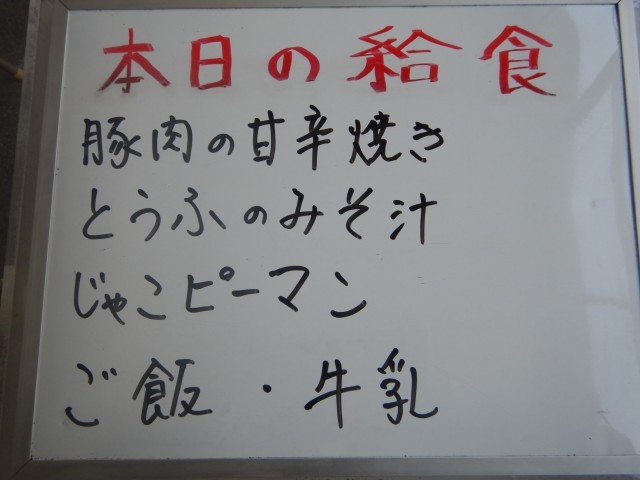 本日の給食
豚肉の甘辛焼き
とうふのみそ汁
じゃこピーマン
ご飯・牛乳